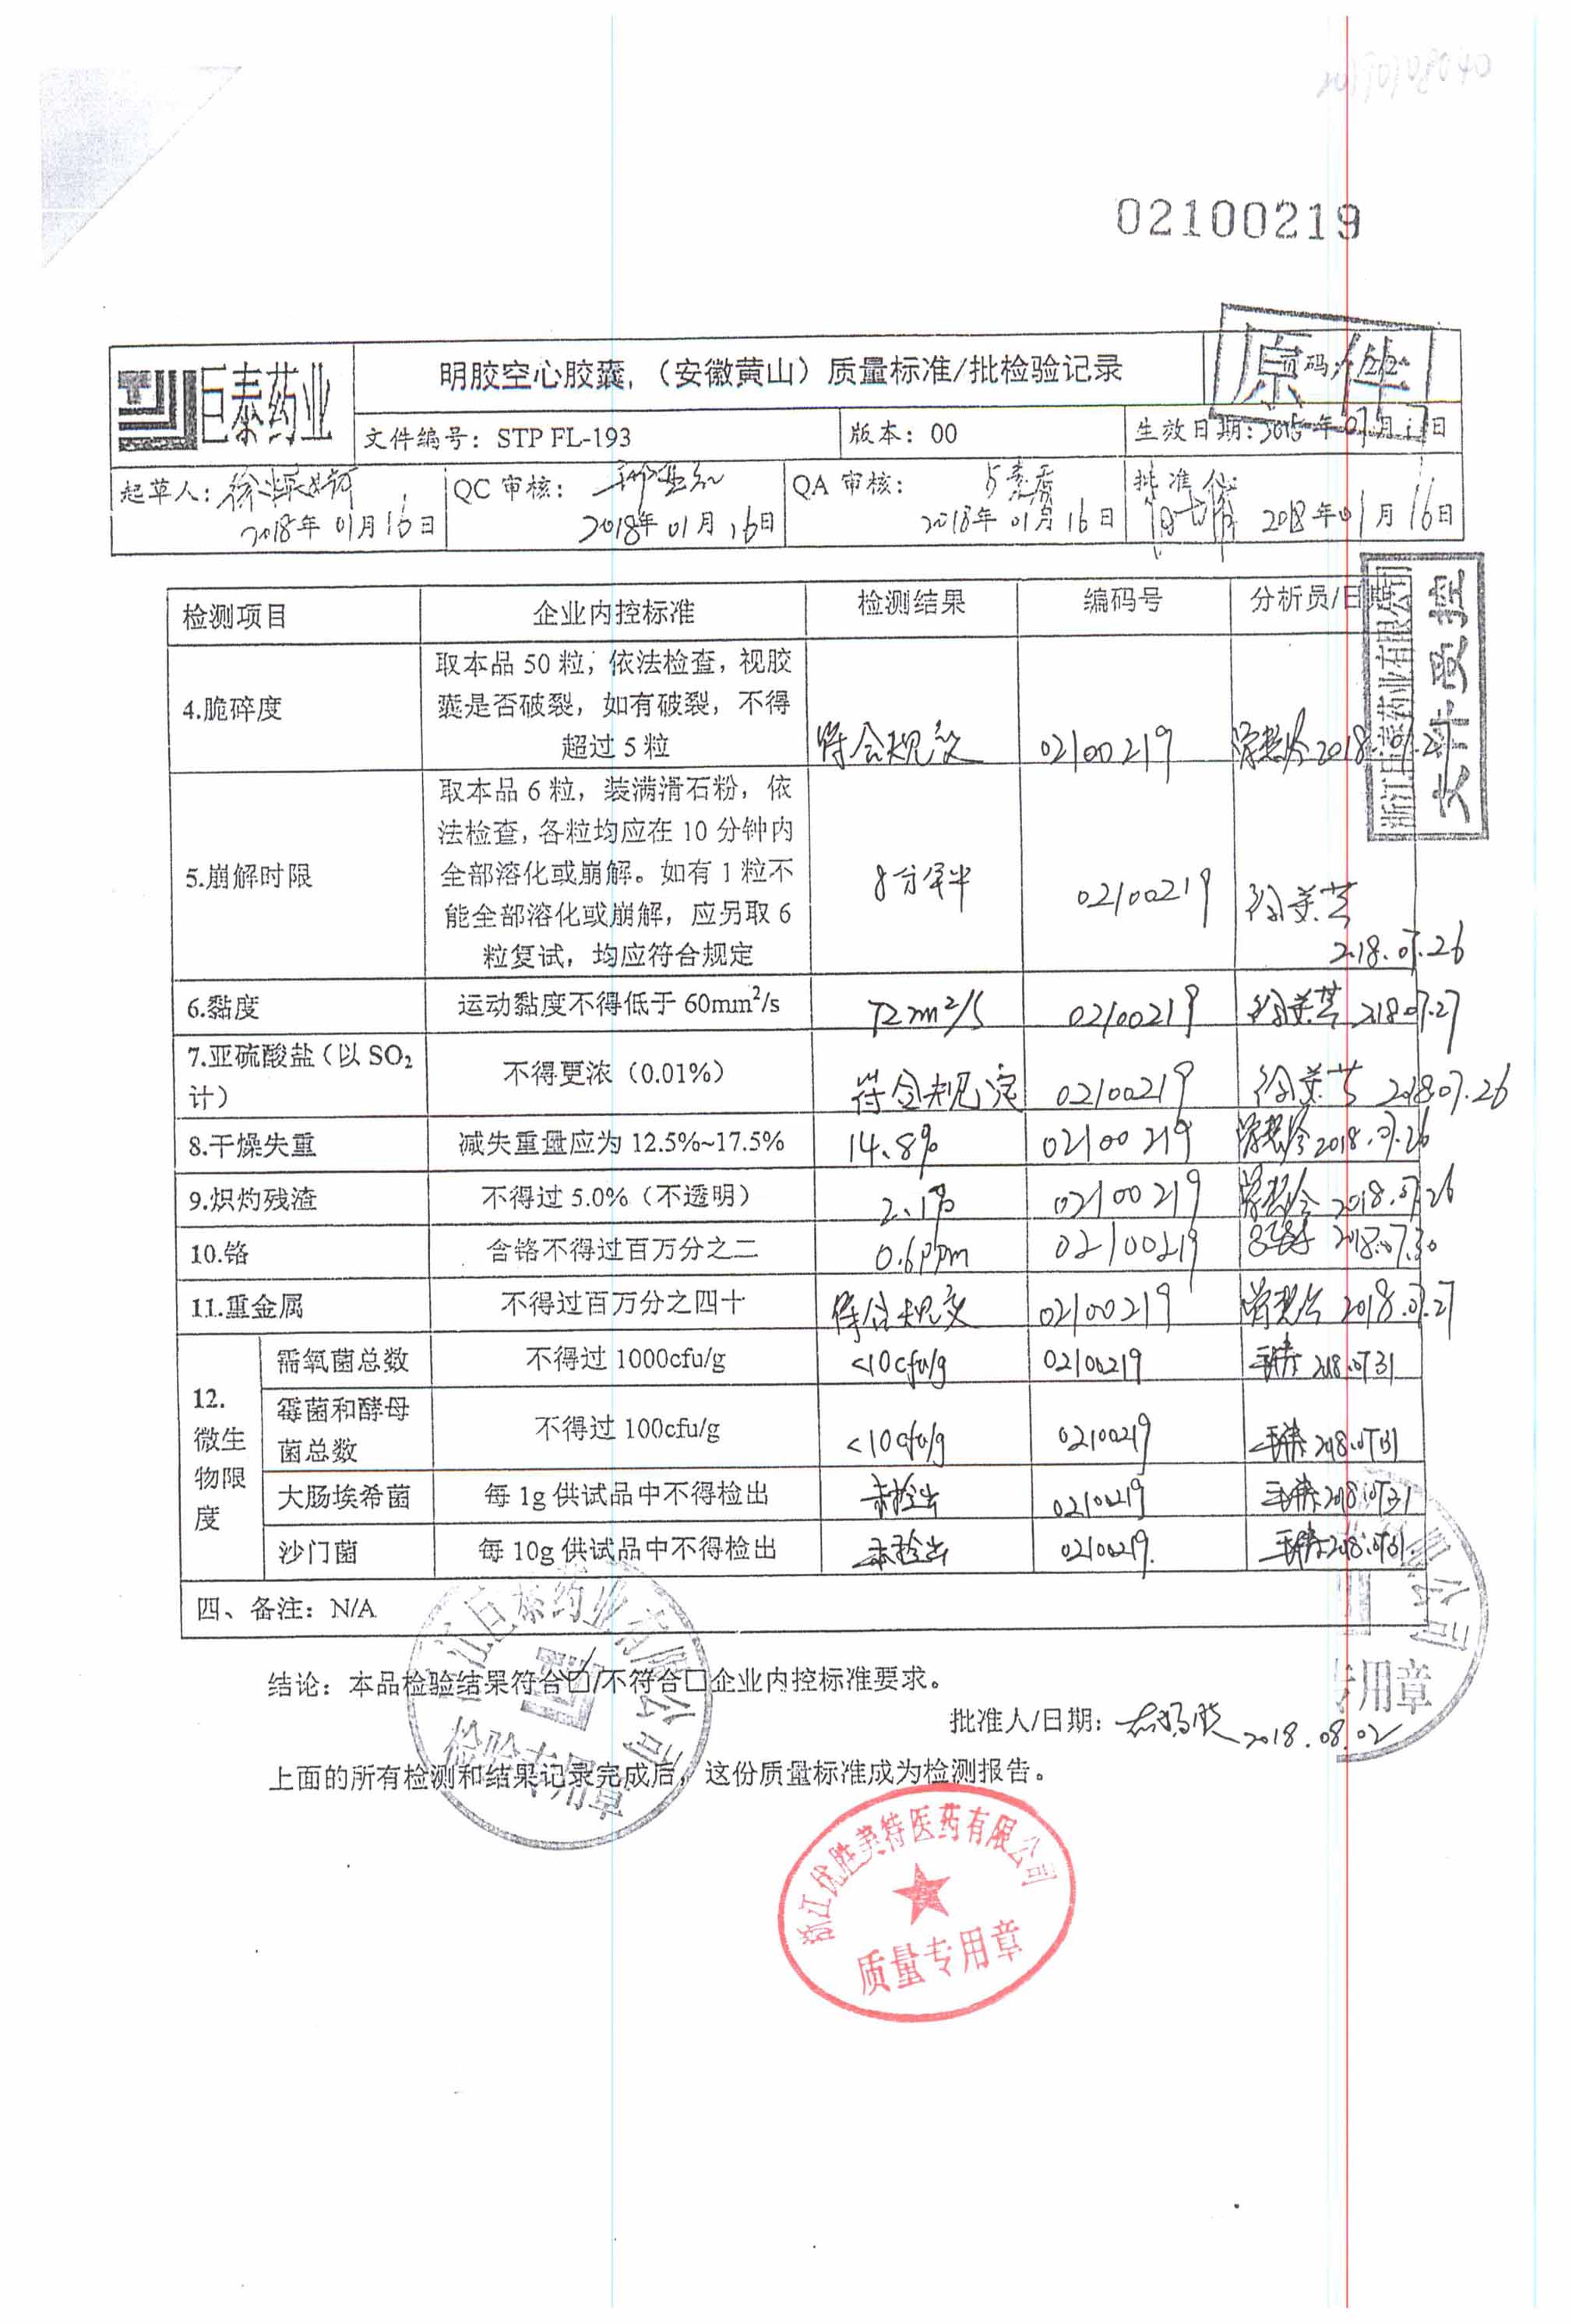 02100219
巨泰药业
明胶空心胶囊,（安徽黄山）质量标准/批检验记录
文件编号：STP FL-193
版本：00
生效日期：
原件
起草人：
2018年01月16日
QC 审核：
2018年01月16日
QA 审核：
2018年01月16日
批准
2018年01月16日
文件受控
检测项目
企业内控标准
检测结果
编码号
分析员/日期
4.脆碎度
取本品 50 粒，依法检查，视胶
囊是否破裂，如有破裂，不得
超过 5 粒
符合规定
02100219
2018.07.27
5.崩解时限
取本品 6 粒，装满滑石粉，依
法检查，各粒均应在 10 分钟内
全部溶化或崩解。如有 1 粒不
能全部溶化或崩解，应另取 6
粒复试，均应符合规定
8分钟半
02100219
2018.07.26
6.黏度
运动黏度不得低于 60mm²/s
72mm²/s
02100219
2018.07.27
7.亚硫酸盐（以 SO₂
计）
不得更浓（0.01%）
符合规定
02100219
2018.07.26
8.干燥失重
减失重量应为 12.5%~17.5%
14.8%
02100219
2018.07.26
9.炽灼残渣
不得过 5.0%（不透明）
2.1%
02100219
2018.07.26
10.铬
含铬不得过百万分之二
0.6ppm
02100219
2018.07.30
11.重金属
不得过百万分之四十
符合规定
02100219
2018.07.27
12.
微生
物限
度
需氧菌总数
不得过 1000cfu/g
<10cfu/g
02100219
2018.07.31
霉菌和酵母
菌总数
不得过 100cfu/g
<10cfu/g
02100219
2018.07.31
大肠埃希菌
每 1g 供试品中不得检出
未检出
02100219
2018.07.31
沙门菌
每 10g 供试品中不得检出
未检出
02100219.
2018.07.31
四、备注：N/A
结论：本品检验结果符合☑/不符合□企业内控标准要求。
批准人/日期：
2018.08.02
上面的所有检测和结果记录完成后，这份质量标准成为检测报告。
浙江巨泰药业有限公司
检验专用章
公司
专用章
浙江优胜美特医药有限公司
质量专用章